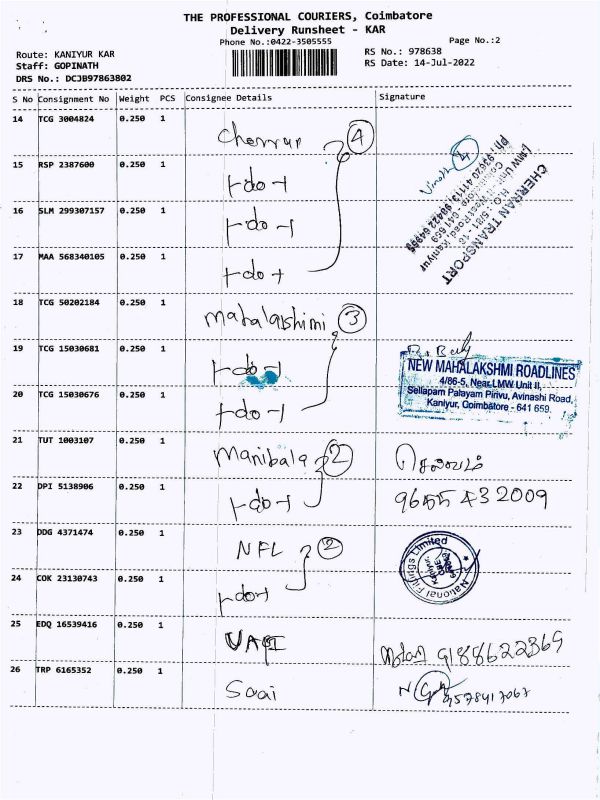 THE PROFESSIONAL COURIERS, Coimbatore
Delivery Runsheet - KAR
Phone No.:0422-3505555
Page No.:2
Route: KANIYUR KAR
RS No.: 978638
Staff: GOPINATH
RS Date: 14-Jul-2022
DRS No.: DCJB97863802
S No Consignment No Weight PCS Consignee Details Signature
14 TCG 3004824 0.250 1 Cherran 4
15 RSP 2387600 0.250 1 -do-
Vinoth
CHERRAN TRANSPORT
H.O.: 5/81-16
LMW Unit II West Road, Kaniyur
Coimbatore - 641 659
16 SLM 299307157 0.250 1 -do-
17 MAA 568340105 0.250 1 -do-
18 TCG 50202184 0.250 1 Mahalakshimi 3
19 TCG 15030681 0.250 1 -do-
NEW MAHALAKSHMI ROADLINES
4/86-5, Near LMW Unit II,
Sellapam Palayam Pirivu, Avinashi Road,
Kaniyur, Coimbatore - 641 659.
20 TCG 15030676 0.250 1 -do-
21 TUT 1003107 0.250 1 Manibala 2
22 DPI 5138906 0.250 1 -do- 9655432009
23 DDG 4371474 0.250 1 NFL 2
National Fittings Limited
Kaniyur
24 COK 23130743 0.250 1 -do-
25 EDQ 16539416 0.250 1 9188622369
26 TRP 6165352 0.250 1 Saai